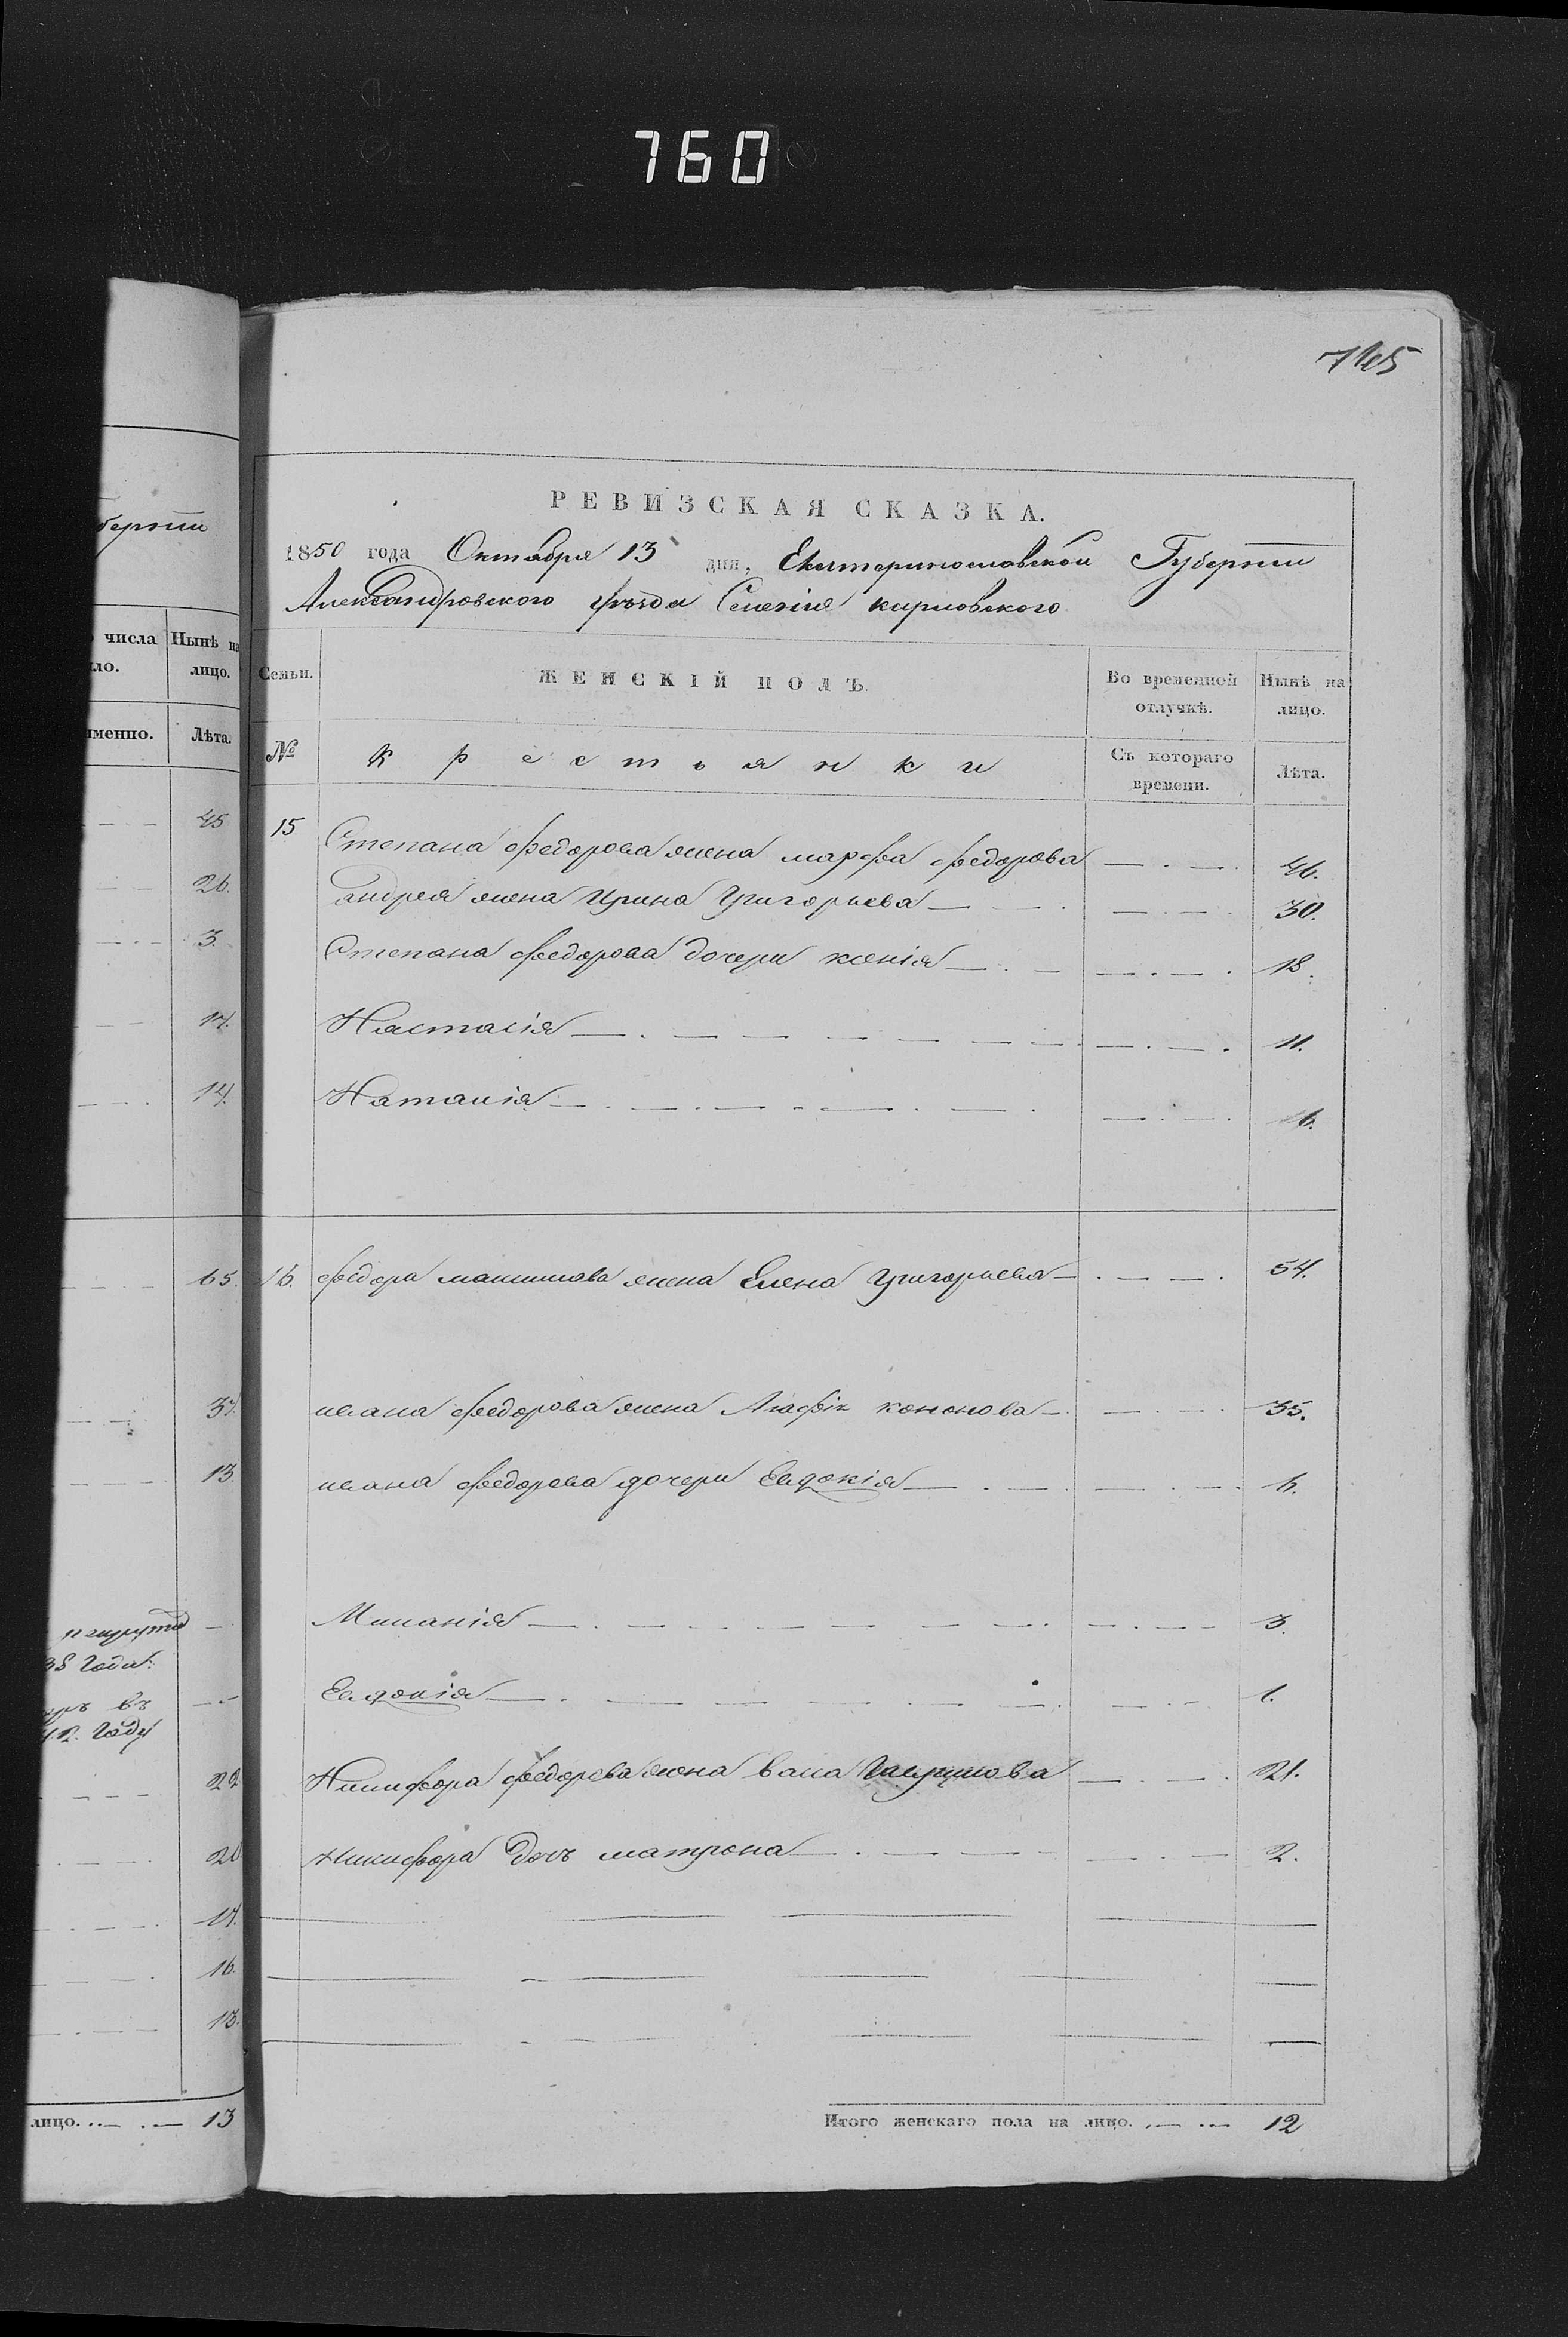 760
745
РЕВИЗСКАЯ СКАЗКА.
1850 года Октября 13 дня, Екатеринославской Губерніи
Александровского уѣзда Селенія кириловского
Семьи.
ЖЕНСКІЙ ПОЛЪ.
Во временной отлучкѣ.
Нынѣ на лицо.
№
Крестьянки
Съ котораго времени.
Лѣта.
15 Степана федорова жена марфа федорова 46.
андрея жена Ирина Григорьева 30.
Степана федорова дочери ксенія 18.
Настасія 11.
Наталія 6.
16. федора максимова жена Елена Григорьева 54.
ивана федорова жена Агафія кононова 35.
ивана федорова дочери Евдокія 6.
Миланія 3.
Евдокія 1.
Никифора федорова жена васа 21.
никифора дочь матрона 2.
Итого женскаго пола на лицо. 12
берніи
числа
ло.
Нынѣ на
лицо.
именно.
Лѣта.
45
26.
3.
17.
14.
65.
37.
13.
38 Года.
въ
Году
22
20
17.
16.
13.
лицо. 13